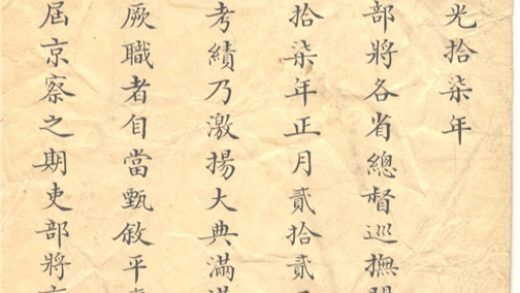 光拾柒年
部將各省總督巡撫開
拾柒年正月貳拾貳
考績乃激揚大典滿漢
厥職者自當甄敘平
屆京察之期吏部將京